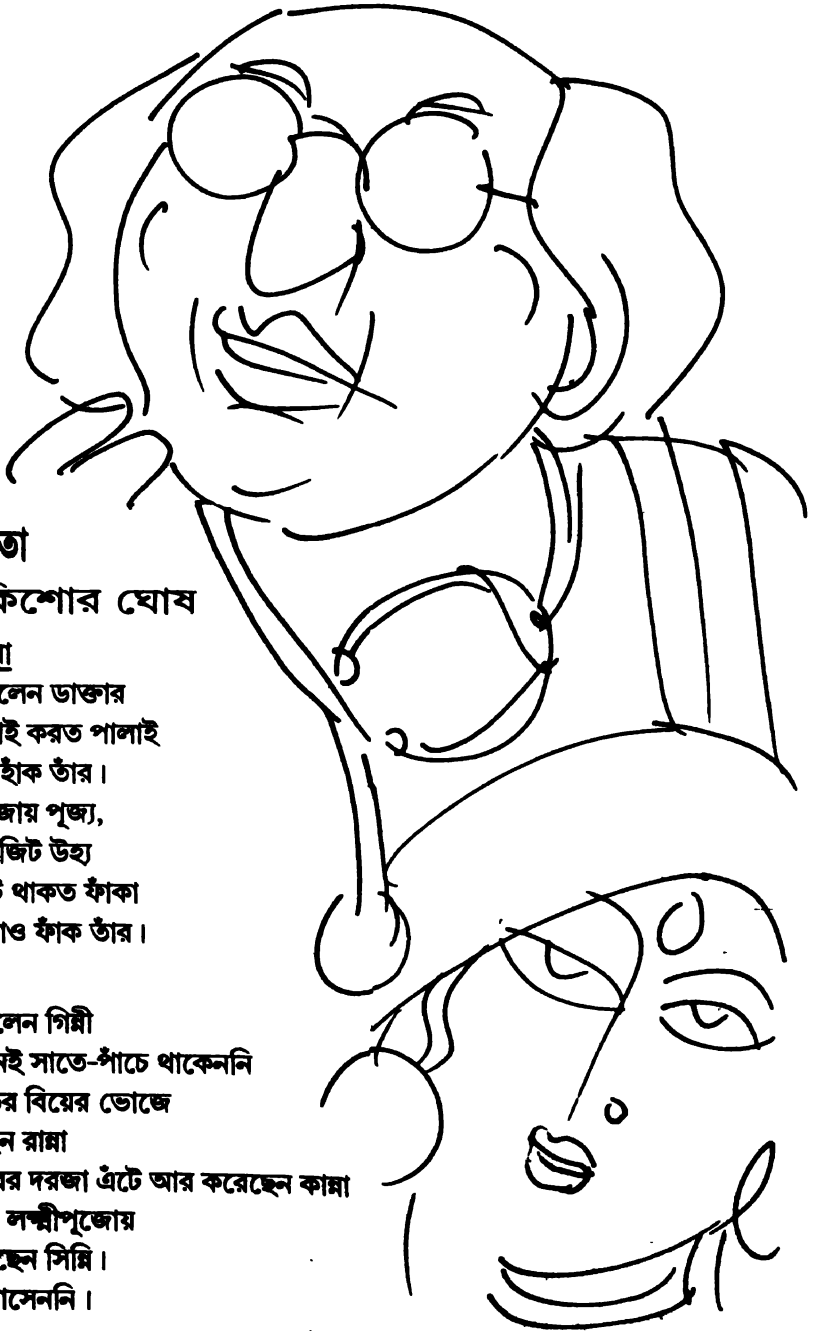 তা
কিশোর ঘোষ
য়া
লেন ডাক্তার
ই করত পালাই
হাঁক তাঁর।
জায় পূজ্য,
জিট উহ্য
থাকত ফাঁকা
ও ফাঁক তাঁর।
লেন গিন্নী
ই সাতে-পাঁচে থাকেননি
র বিয়ের ভোজে
ন রান্না
র দরজা এঁটে আর করেছেন কান্না
লক্ষ্মীপূজোয়
ছেন সিন্নি।
সেননি।